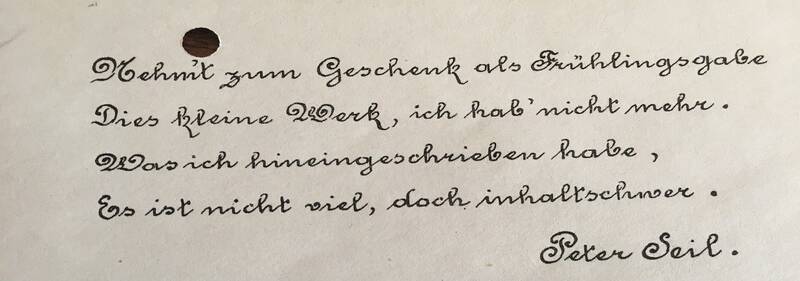 Nehm't zum Geschenk als Frühlingsgabe
Dies kleine Werk, ich hab' nicht mehr.
Was ich hineingeschrieben habe,
Es ist nicht viel, doch inhaltschwer.
Peter Seil.